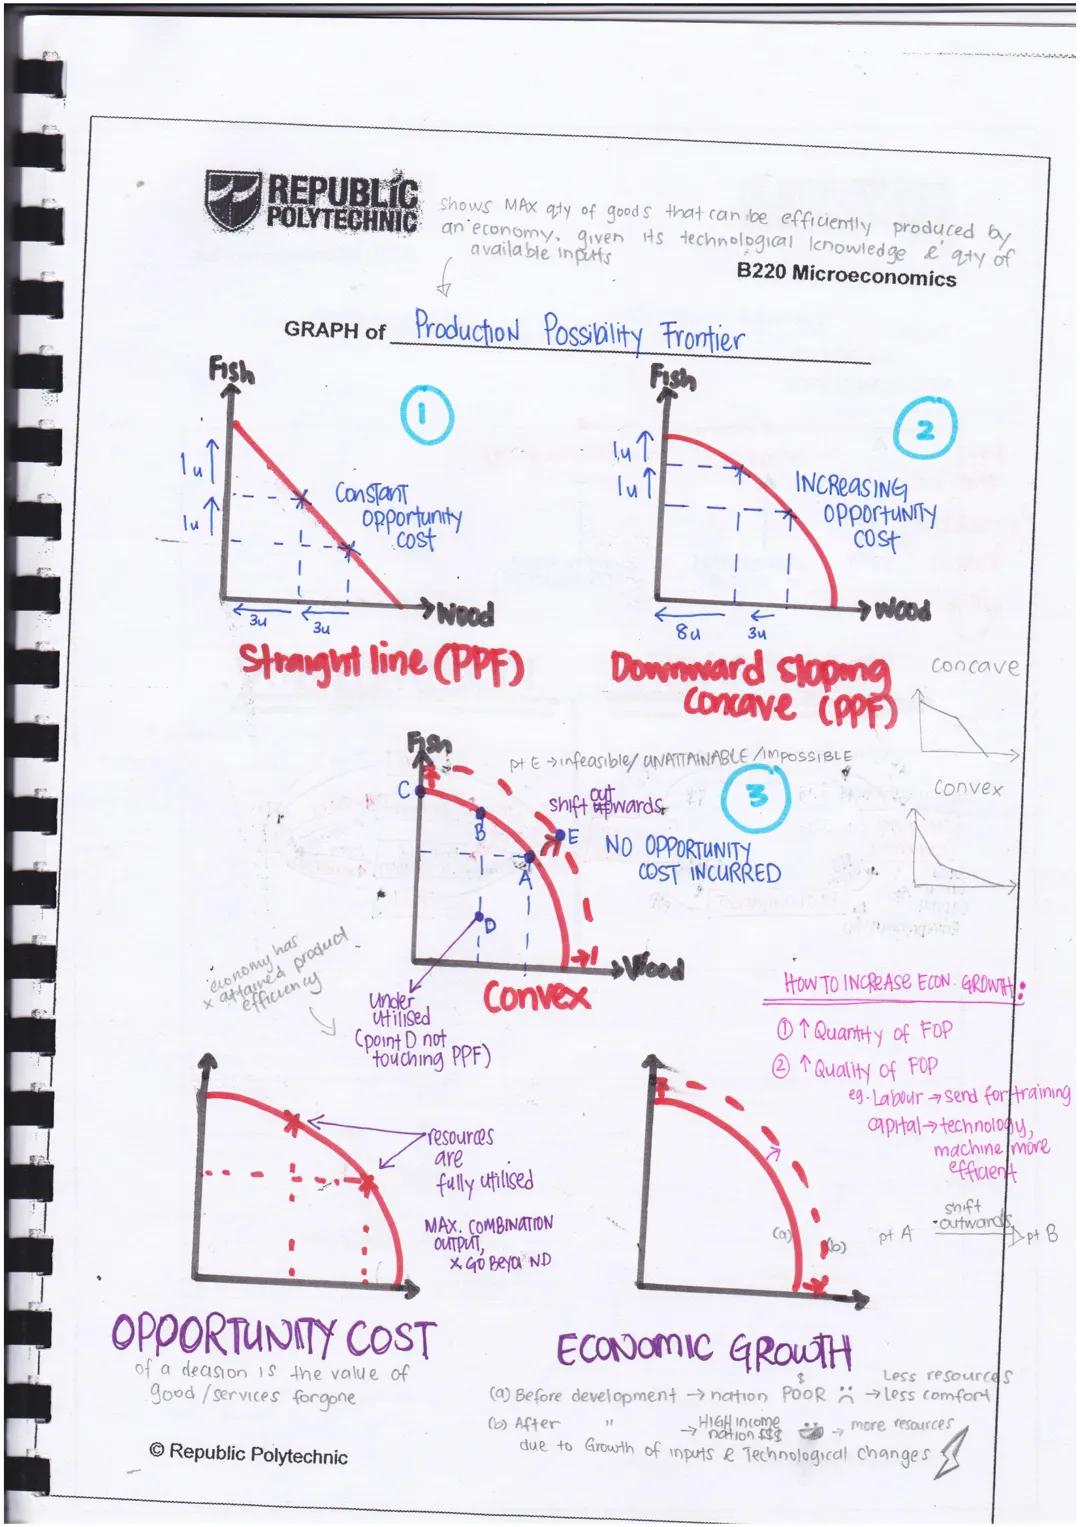 REPUBLIC
POLYTECHNIC
shows MAX qty of goods that can be efficiently produced by
an economy, given its technological knowledge & qty of
available inputs
B220 Microeconomics
GRAPH of Production Possibility Frontier
Fish
1
1u
1u
Constant
opportunity
cost
3u
3u
Wood
Straight line (PPF)
Fish
2
1u
1u
INCREASING
OPPORTUNITY
COST
8u
3u
Wood
Downward sloping
Concave (PPF)
concave
convex
Fish
pt E → infeasible/ UNATTAINABLE /IMPOSSIBLE
3
C
B
A
D
E
out
shift upwards
NO OPPORTUNITY
COST INCURRED
Wood
Convex
economy has
x attained product
efficiency
Under
utilised
(point D not
touching PPF)
HOW TO INCREASE ECON. GROWTH:
① ↑ Quantity of FOP
② ↑ Quality of FOP
eg. Labour → send for training
capital → technology,
machine more
efficient
shift
outwards
pt A → pt B
resources
are
fully utilised
MAX. COMBINATION
OUTPUT,
x GO BEYOND
(a)
(b)
OPPORTUNITY COST
of a decision is the value of
good / services forgone
ECONOMIC GROWTH
(a) Before development → nation POOR $ → Less resources
Less comfort
(b) After " → HIGH income
nation $$$ → more resources
due to Growth of inputs & Technological Changes
© Republic Polytechnic